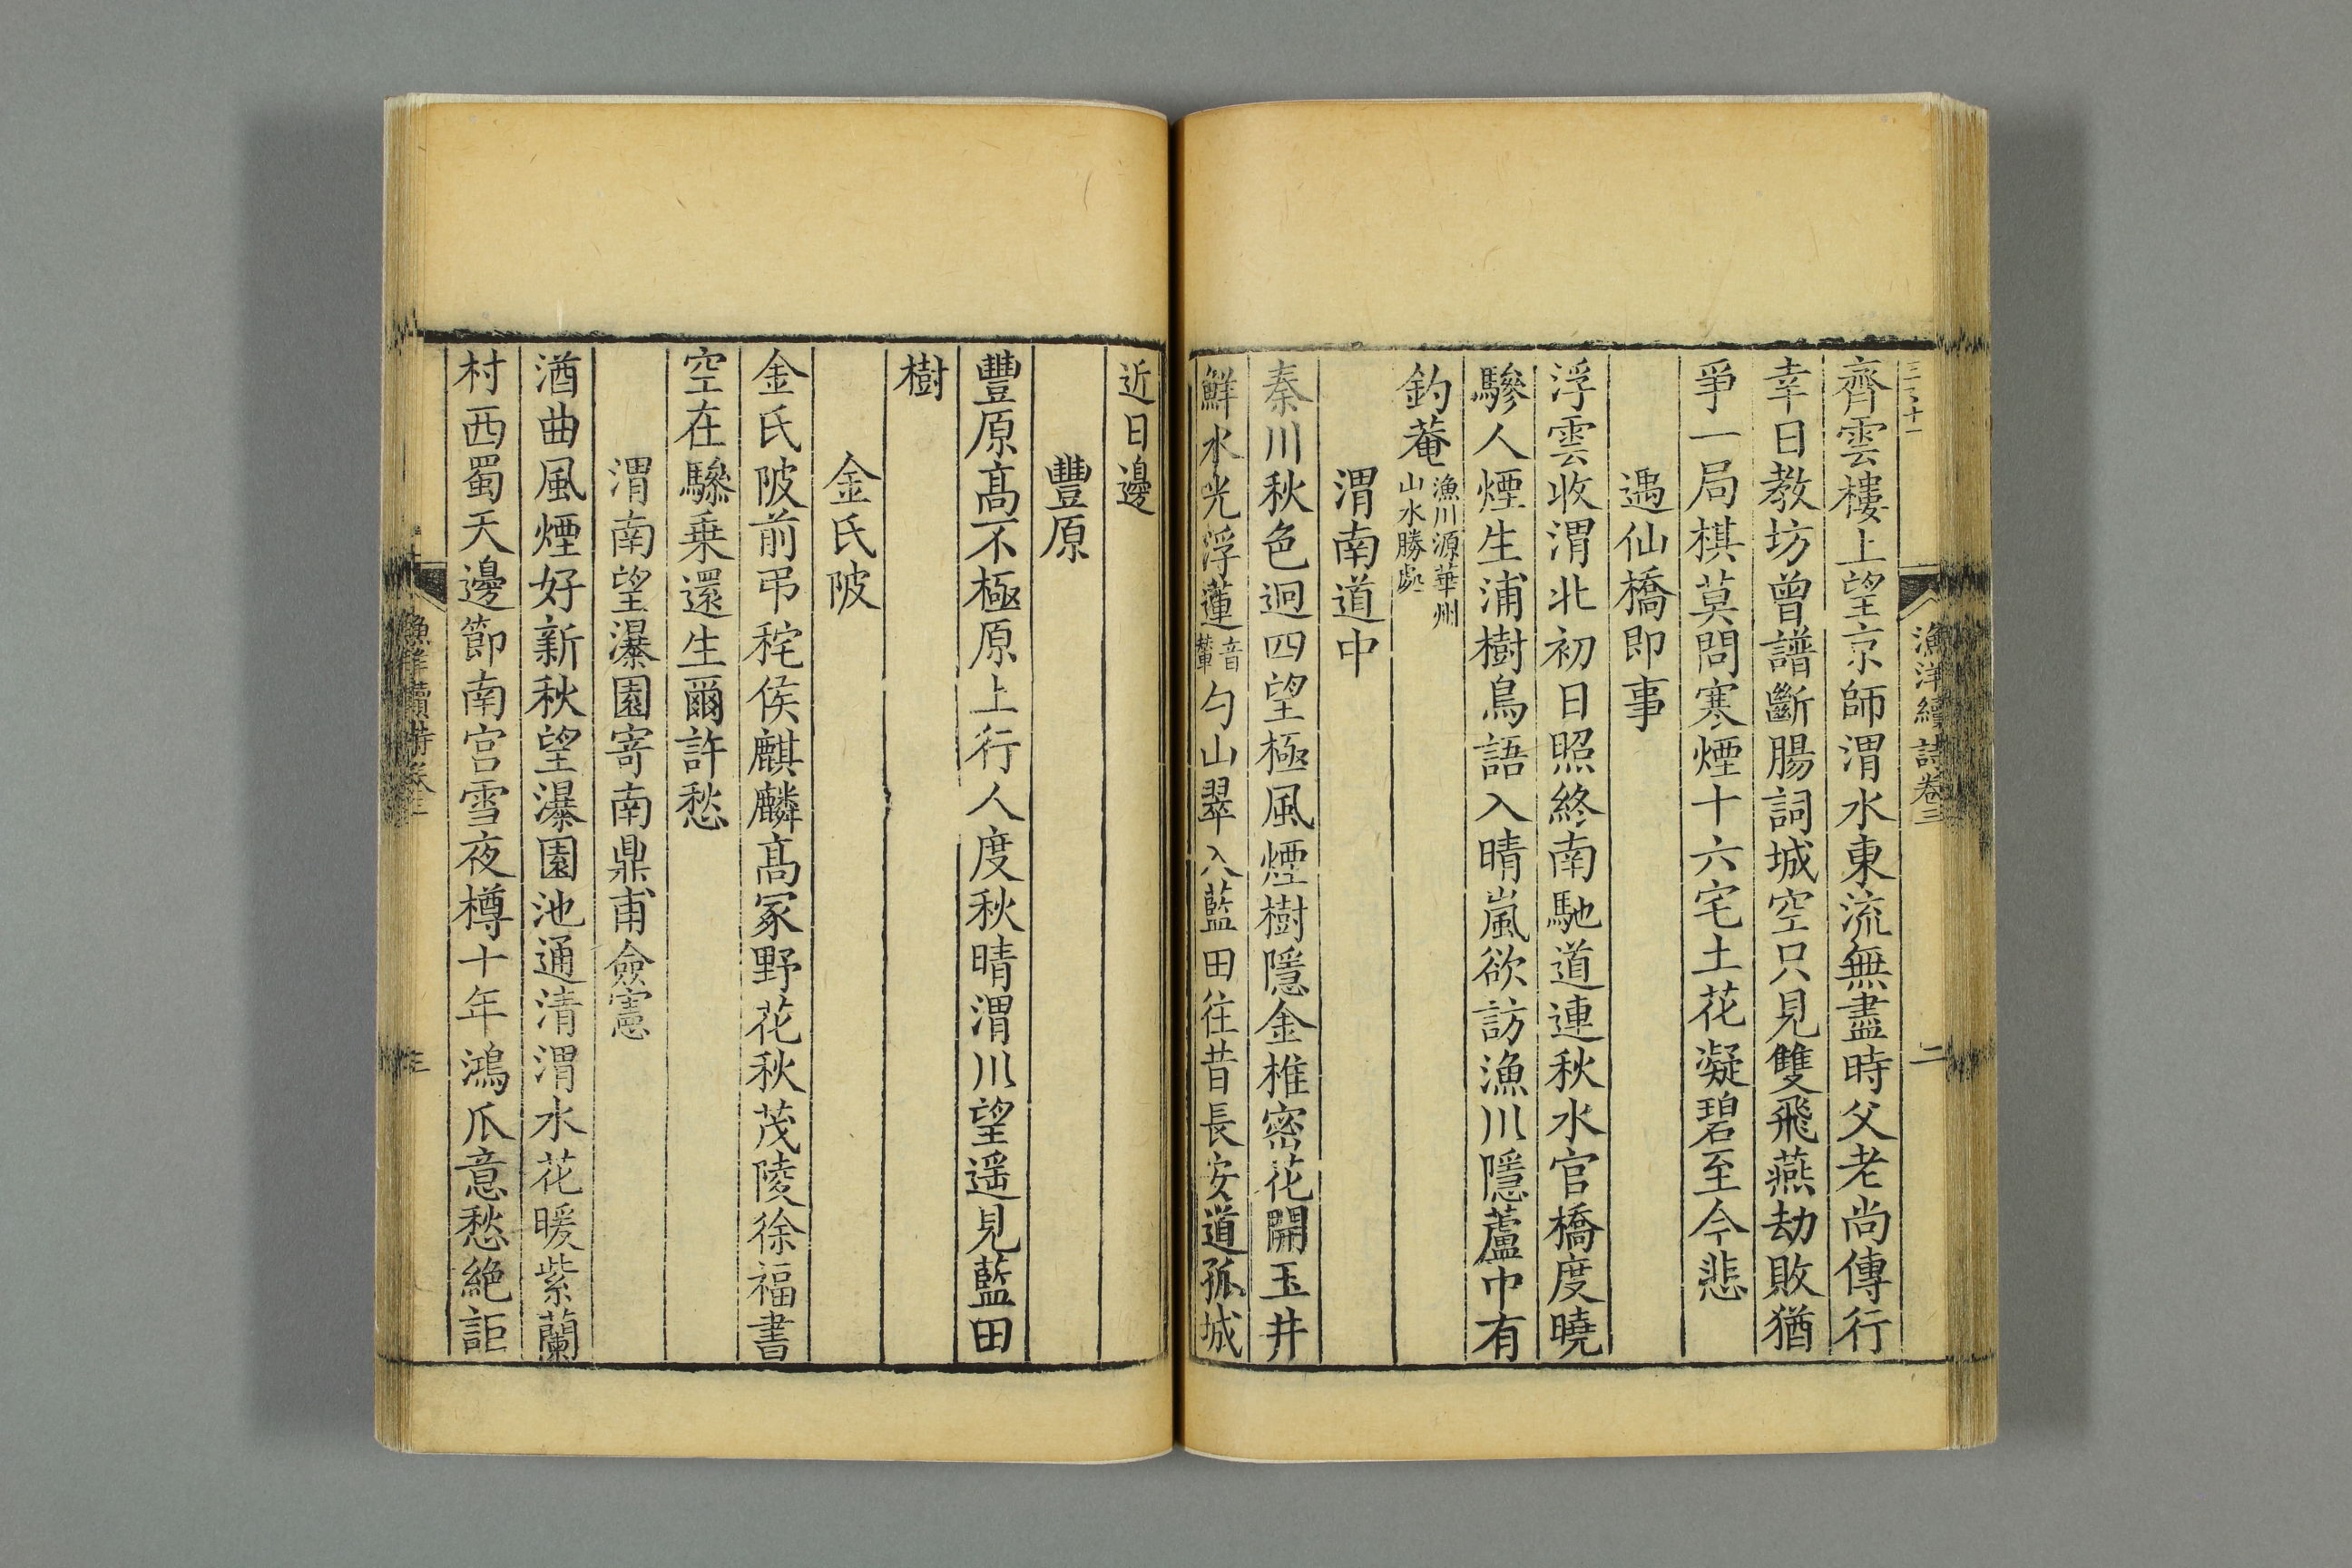 漁洋續詩卷三
二
齊雲樓上望京師渭水東流無盡時父老尚傳行
幸日教坊曾譜斷腸詞城空只見雙飛燕劫敗猶
爭一局棋莫問寒煙十六宅土花凝碧至今悲
遇仙橋即事
浮雲收渭北初日照終南馳道連秋水官橋度曉
驂人煙生浦樹鳥語入晴嵐欲訪漁川隱蘆中有
釣菴漁川源華州山水勝處
渭南道中
秦川秋色迥四望極風煙樹隱金椎密花開玉井
鮮水光浮蓮音輦勺山翠入藍田往昔長安道孤城
近日邊
豐原
豐原高不極原上行人度秋晴渭川望遥見藍田
樹
金氏陂
金氏陂前弔秺侯麒麟高冢野花秋茂陵徐福書
空在驂乗還生爾許愁
渭南望瀑園寄南鼎甫僉憲
酒曲風煙好新秋望瀑園池通清渭水花暖紫蘭
村西蜀天邊節南宮雪夜樽十年鴻爪意愁絶詎
漁洋續詩卷三
三